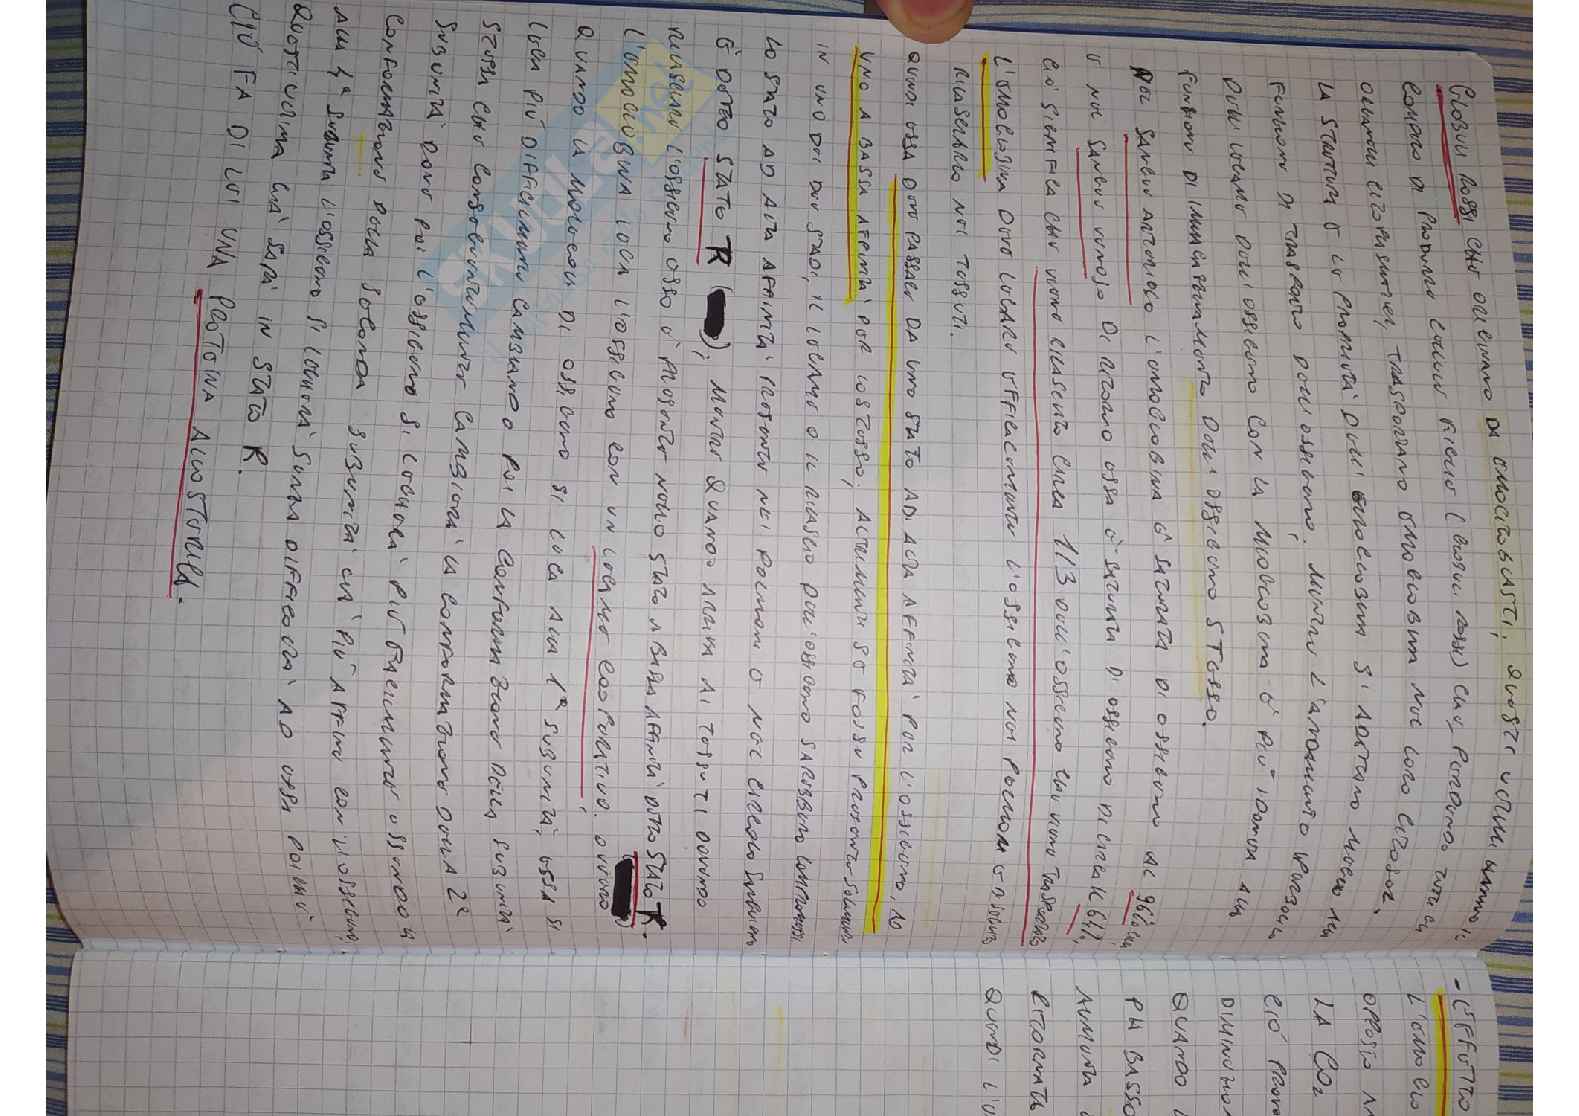 GLOBULI ROSSI CHE DERIVANO DA EMOCITOBLASTI, QUESTE ULTIME HANNO IL
COMPITO DI PRODURRE CELLULE FIGLIE (GLOBULI ROSSI) CHE PERDONO TUTTI GLI
ORGANULI CITOPLASMATICI, TRASPORTANO EMOGLOBINA NEL LORO CITOSOL.
LA STRUTTURA E LE PROPRIETÀ DELL'EMOGLOBINA SI ADATTANO MEGLIO ALLA
FUNZIONE DI TRASPORTO DELL'OSSIGENO, MENTRE L'ANDAMENTO
DELL'OSSIGENO CON LA MIOGLOBINA È PIÙ IDONEA ALLA
FUNZIONE DI IMMAGAZZINAMENTO DELL'OSSIGENO STESSO.
NEL SANGUE ARTERIOSO L'EMOGLOBINA È SATURATA DI OSSIGENO AL 96%
E NEL SANGUE VENOSO DI RITORNO ESSA È SATURATA DI OSSIGENO DI CIRCA IL 64%,
CIÒ SIGNIFICA CHE VIENE RILASCIATO CIRCA 1/3 DELL'OSSIGENO CHE VIENE TRASPORTATO
L'EMOGLOBINA DEVE LEGARE EFFICACEMENTE L'OSSIGENO NEI POLMONI E
RILASCIARLO NEI TESSUTI.
QUINDI ESSA DEVE PASSARE DA UNO STATO AD ALTA AFFINITÀ PER L'OSSIGENO, AD
UNO A BASSA AFFINITÀ PER LO STESSO, ALTRIMENTI SE FOSSE PRESENTE SOLAMENTE
IN UNO DEI DUE STATI, IL LEGAME O IL RILASCIO DELL'OSSIGENO SAREBBERO COMPROMESSI
LO STATO AD ALTA AFFINITÀ PRESENTE NEI POLMONI E NEL CIRCOLO
È DETTO STATO R ( ); MENTRE QUANDO ARRIVA AI TESSUTI DOVENDO
RILASCIARE L'OSSIGENO ESSO È PRESENTE NELLO STATO A BASSA AFFINITÀ DETTO STATO R.
L'EMOGLOBINA LEGA L'OSSIGENO CON UN LEGAME COOPERATIVO, OVVERO ( )
QUANDO LA MOLECOLA DI OSSIGENO SI LEGA ALLA 1ª SUBUNITÀ, ESSA SI
LEGA PIÙ DIFFICILMENTE CAMBIANDO POI LA CONFORMAZIONE DELLA SUBUNITÀ
STESSA CHE CONSEGUENTEMENTE CAMBIERÀ LA CONFORMAZIONE DELLA 2ª
SUBUNITÀ DOVE POI L'OSSIGENO SI LEGHERÀ PIÙ FACILMENTE ESSENDO LA
CONFORMAZIONE DELLA SECONDA SUBUNITÀ GIÀ PIÙ AFFINE CON L'OSSIGENO,
ALLA 4ª SUBUNITÀ L'OSSIGENO SI LEGHERÀ SENZA DIFFICOLTÀ AD ESSA POICHÈ
QUEST'ULTIMA GIÀ SARÀ IN STATO R.
CIÒ FA DI LEI UNA PROTEINA ALLOSTERICA.
- L'EFFETTO
L'EMOGLO
OPPOSTO
LA CO2
CIÒ
DIMINU
QUANDO
PH BASSO
AUMENTA
RITORNATA
QUINDI L'
SKUOLA.net